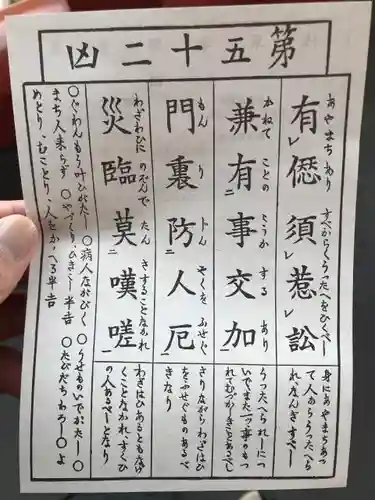 第五十二凶
有𠍴須惹訟
あやまちあり
すべからくうつたへをひくべし
身にあやまちあつて人からうつたへられ、なんぎすべし
兼有事交加
かねて ことの こうか する あり
うつたへられしにつ
いでまた一ッ事のもつ
れてむづかしきことあるべし
門裏防人厄
もん り
やくを ふせぐ
さりながらわざはひ
をふせぐものあるべ
きなり
災臨莫嘆嗟
わざわひに のぞんで たん さすることなかれ
わざはひあるともなげ
くことなかれ、すくひ
の人あるべしとなり
○ぐわんもう叶ひがたし ○病人ながびく ○うせものいでがたし ○
まち人来らず ○やづくり、ひきこし半吉 ○たびだちわろし ○よ
めとり、むことり、人をかゝへる半吉